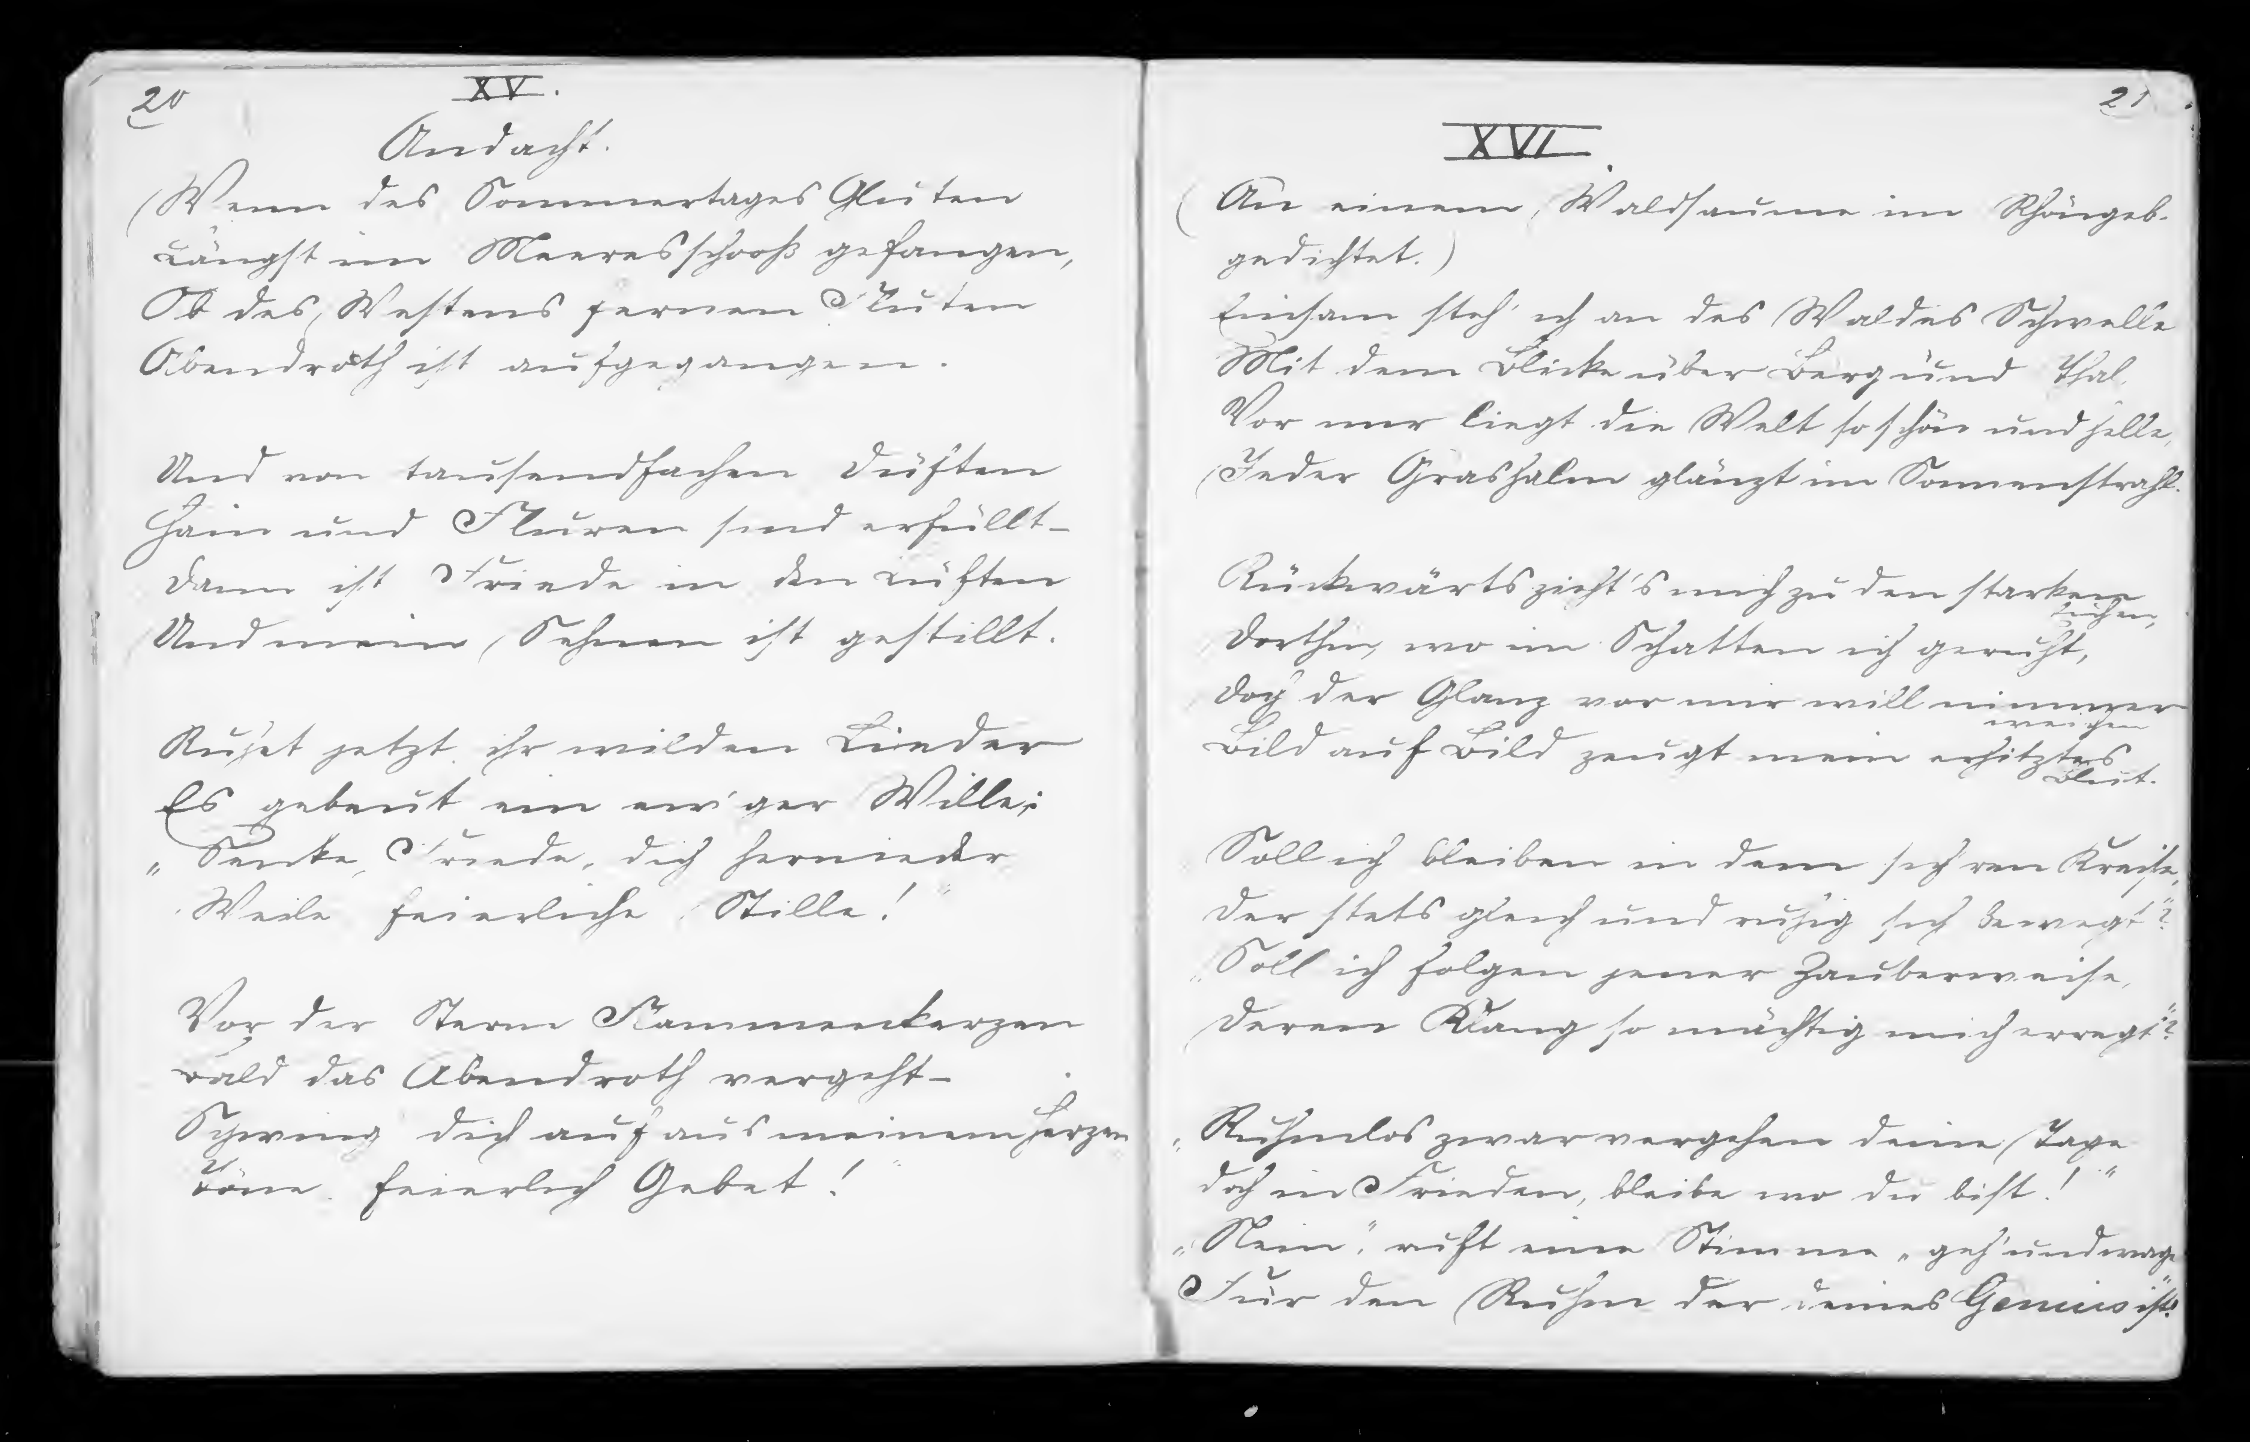 20
XV.
Andacht.
Wenn des Sommertages Gluten
Längst im Meeresschooß gefangen,
Ob des Westens fernen Fluten
Abendroth ist aufgegangen.
Und von tausendfachen Düften
Hain und Fluren sind erfüllt –
Dann ist Friede in den Lüften
Und mein Sehnen ist gestillt.
Ruhet jetzt ihr wilden Lieder
Es gebeut ein ew'ger Wille;
„Senke, Friede, dich hernieder
Weile feierliche Stille!"
Vor der Sterne Flammenkerzen
Bald das Abendroth vergeht –
Schwing dich auf aus meinem Herzen
Töne feierlich Gebet!
21
XVI.
(An einem Waldsaume im Rhöngeb.
gedichtet.)
Einsam steh' ich an des Waldes Schwelle
Mit dem Blicke über Berg und Thal.
Vor mir liegt die Welt so schön und helle,
Jeder Grashalm glänzt im Sonnenstrahl.
Rückwärts zieht's mich zu den starken
Eichen,
Dorthin, wo im Schatten ich geruht,
Doch der Glanz vor mir will nimmer
weichen
Bild auf Bild zeugt mein erhitztes
Blut.
Soll ich bleiben in dem sich'ren Kreise,
Der stets gleich und ruhig sich bewegt"?
„Soll ich folgen jener Zauberweise,
Deren Klang so mächtig mich erregt"?
„Ruhmlos zwar vergehen deine Tage
doch in Frieden, bleibe wo du bist!"
„Nein", ruft eine Stimme „geh' und wage
Für den Ruhm der deines Genius ist!"